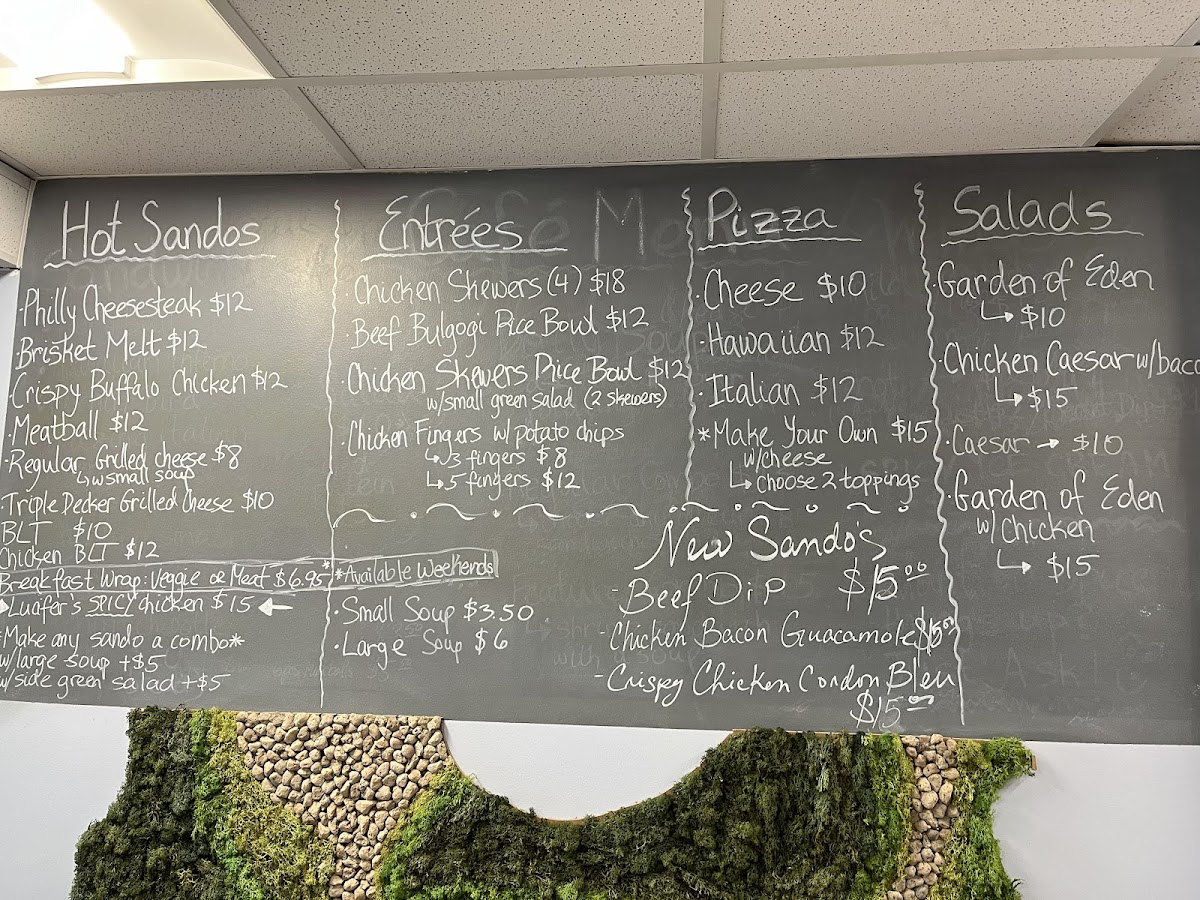 Hot Sandos
·Philly Cheesesteak $12
·Brisket Melt $12
·Crispy Buffalo Chicken $12
·Meatball $12
·Regular Grilled cheese $8
↳w small soup
·Triple Decker Grilled Cheese $10
BLT $10
Chicken BLT $12
Breakfast Wrap: Veggie or Meat $6.95* *Available Weekends
Luafer's SPICY chicken $15 ←
*Make any sando a combo*
w/large soup +$5
w/side green salad +$5
Entrées
·Chicken Skewers (4) $18
·Beef Bulgogi Rice Bowl $12
·Chicken Skewers Rice Bowl $12
w/small green salad (2 skewers)
·Chicken Fingers w/ potato chips
↳3 fingers $8
↳5 fingers $12
·Small Soup $3.50
·Large Soup $6
Pizza
·Cheese $10
·Hawaiian $12
·Italian $12
*Make Your Own $15
w/cheese
↳choose 2 toppings
New Sando's
-Beef Dip $15.00
-Chicken Bacon Guacamole $15.00
-Crispy Chicken Condon Bleu
$15.00
Salads
·Garden of Eden
↳$10
·Chicken Caesar w/baco
↳$15
·Caesar → $10
·Garden of Eden
w/Chicken
↳$15